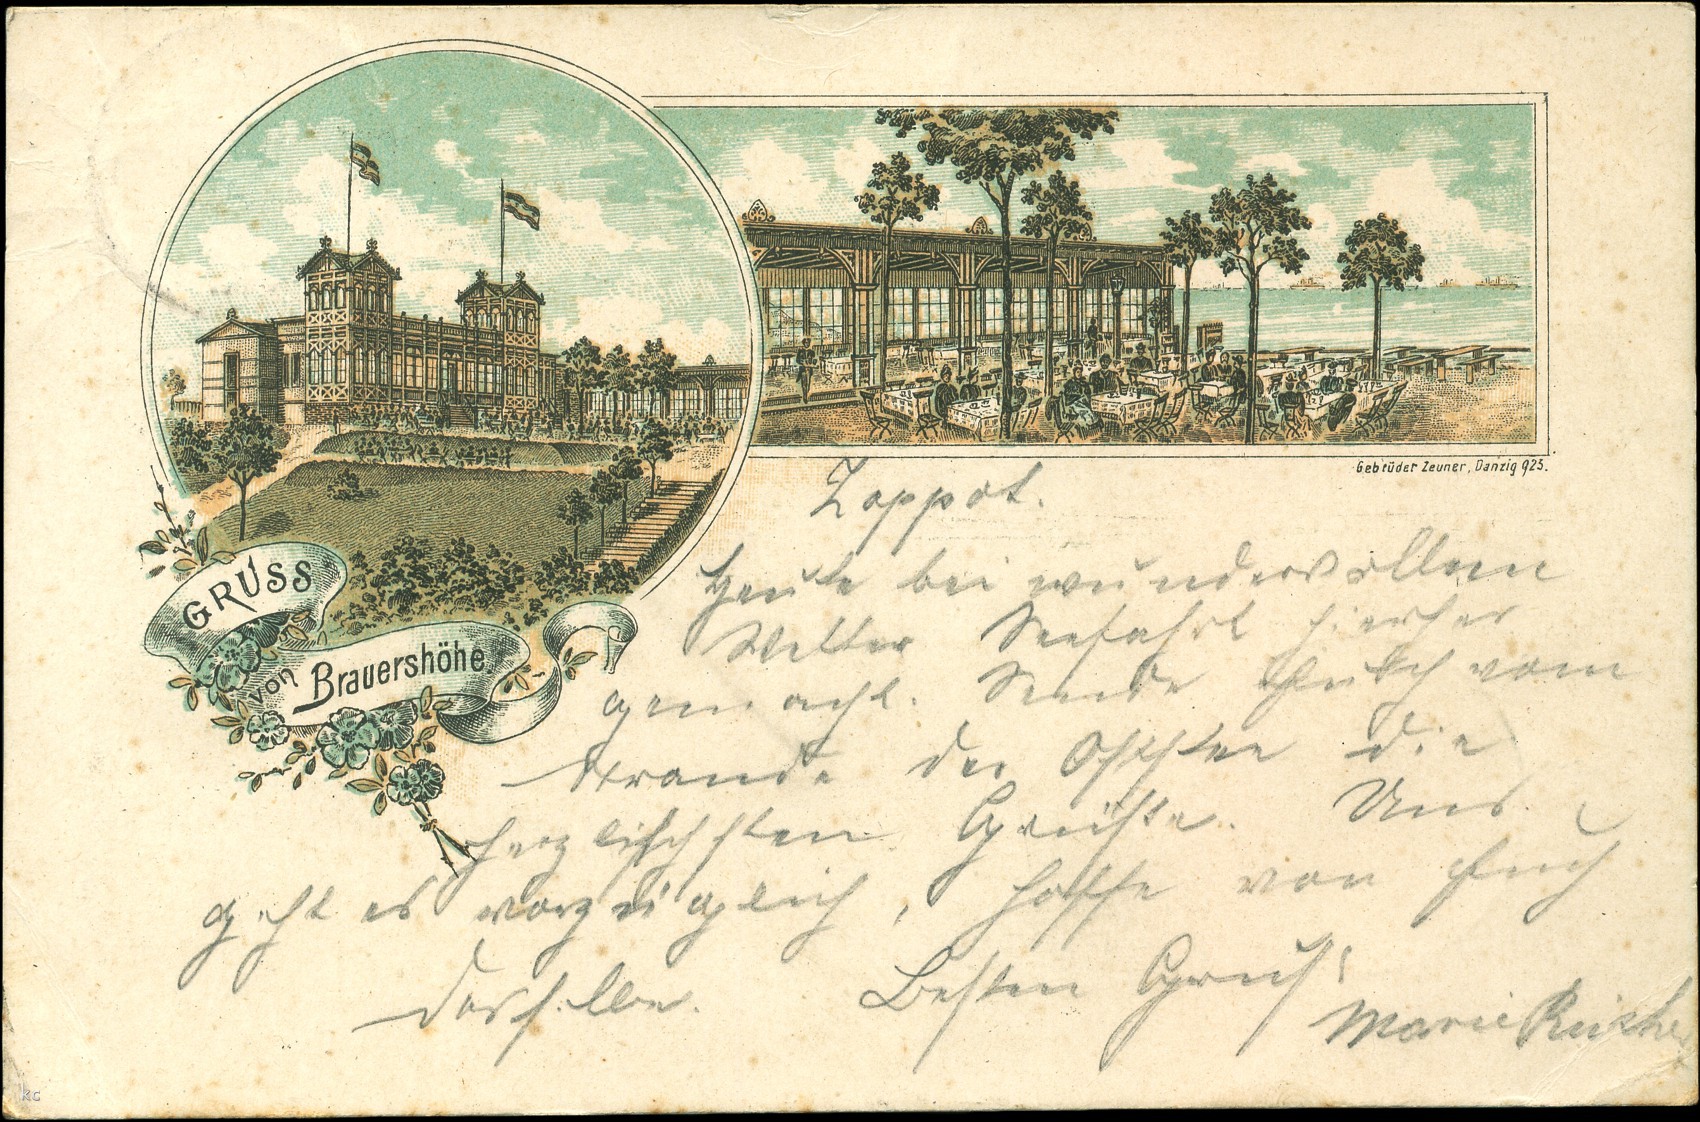 GRUSS
von Brauershöhe
Gebrüder Zeuner, Danzig 925.
Zoppot.
Heute bei wundervollem
Wetter Seefahrt hierher
gemacht. Sende Euch vom
Strande der Ostsee die
herzlichsten Grüße. Uns
geht es vorzüglich, hoffe von Euch
dasselbe. Besten Gruß!
Marie
kc